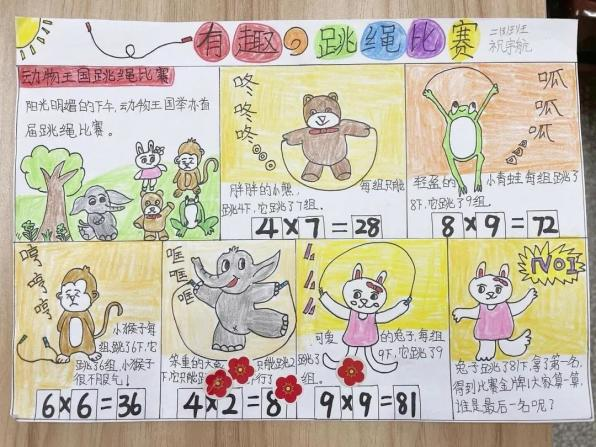 有趣の跳绳比赛
二(8)班
祝宇航
动物王国跳绳比赛
阳光明媚的下午,动物王国举办首
届跳绳比赛。
咚
咚
咚
胖胖的小熊,每组只能
跳4下,它跳了7组。
4×7=28
呱
呱
呱
轻盈的小青蛙,每组跳了
8下,它跳了9组。
8×9=72
哼
哼
哼
小猴子每
组跳了6下,它
跳了6组,小猴子
很不服气!
6×6=36
哐
哐
哐
笨重的大象只能跳2
下,它只能跳
行了
4×2=8
可爱的兔子,每组
跳了9下,它跳了9
组。
9×9=81
NO1
兔子跳了81下,拿了第一名,
得到比赛金牌!大家算一算,
谁是最后一名呢?